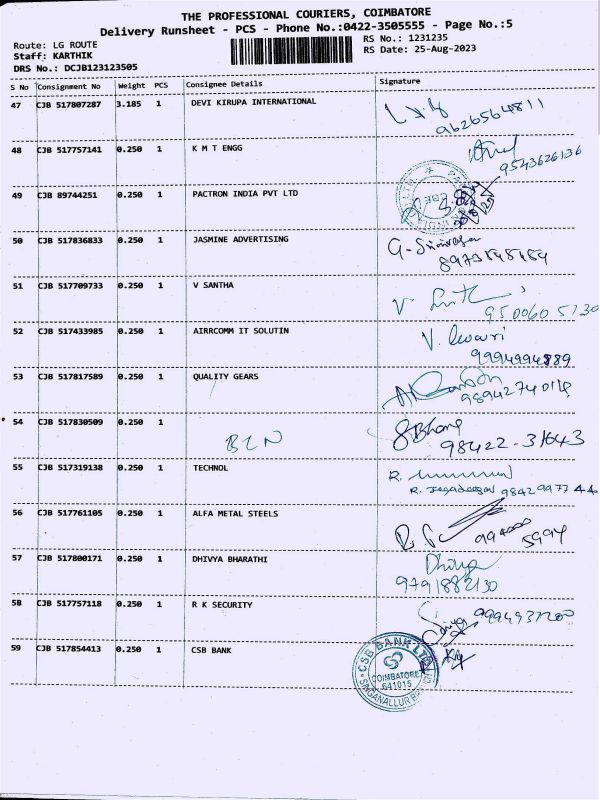 THE PROFESSIONAL COURIERS, COIMBATORE
Delivery Runsheet - PCS - Phone No.:0422-3505555 - Page No.:5
Route: LG ROUTE RS No.: 1231235
Staff: KARTHIK RS Date: 25-Aug-2023
DRS No.: DCJB123123505
S No Consignment No Weight PCS Consignee Details Signature
47 CJB 517807287 3.185 1 DEVI KIRUPA INTERNATIONAL
9626564811
48 CJB 517757141 0.250 1 K M T ENGG
9543626136
49 CJB 89744251 0.250 1 PACTRON INDIA PVT LTD
50 CJB 517836833 0.250 1 JASMINE ADVERTISING
51 CJB 517709733 0.250 1 V SANTHA
9500605130
52 CJB 517433985 0.250 1 AIRRCOMM IT SOLUTIN
9994994889
53 CJB 517817589 0.250 1 QUALITY GEARS
54 CJB 517830509 0.250 1
98422-31643
55 CJB 517319138 0.250 1 TECHNOL
9842997744
56 CJB 517761105 0.250 1 ALFA METAL STEELS
57 CJB 517800171 0.250 1 DHIVYA BHARATHI
Dhivya
9791882130
58 CJB 517757118 0.250 1 R K SECURITY
59 CJB 517854413 0.250 1 CSB BANK
CSB BANK LTD
COIMBATORE
641015
SINGANALLUR